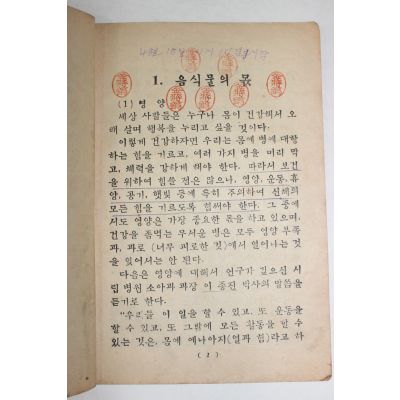 1. 음식물의 몫
(1) 영 양
세상 사람들은 누구나 몸이 건강해서 오
래 살며 행복을 누리고 싶을 것이다.
이렇게 건강하자면 우리는 몸에 병에 대항
하는 힘을 기르고, 여러 가지 병을 미리 막
고, 체력을 강하게 해야 한다. 따라서 보건
을 위하여 힘쓸 점은 많으나, 영양, 운동, 휴
양, 공기, 햇빛 등에 특히 주의하여 신체의
모든 힘을 기르도록 힘써야 한다. 그 중에
서도 영양은 가장 중요한 몫을 하고 있으며,
건강을 좀먹는 무서운 병은 모두 영양 부족
과, 과로 (너무 피로한 것)에서 일어나는 것
을 잊어서는 안 된다.
다음은 영양에 대해서 연구가 깊으신 시
립 병원 소아과 과장 이 종진 박사의 말씀을
듣기로 한다.
"우리들 이 일을 할 수 있고, 또 운동을
할 수 있고, 또 그밖에 모든 활동을 할 수
있는 것은, 몸에 에나아지(열과 힘)라고 하
( 2 )